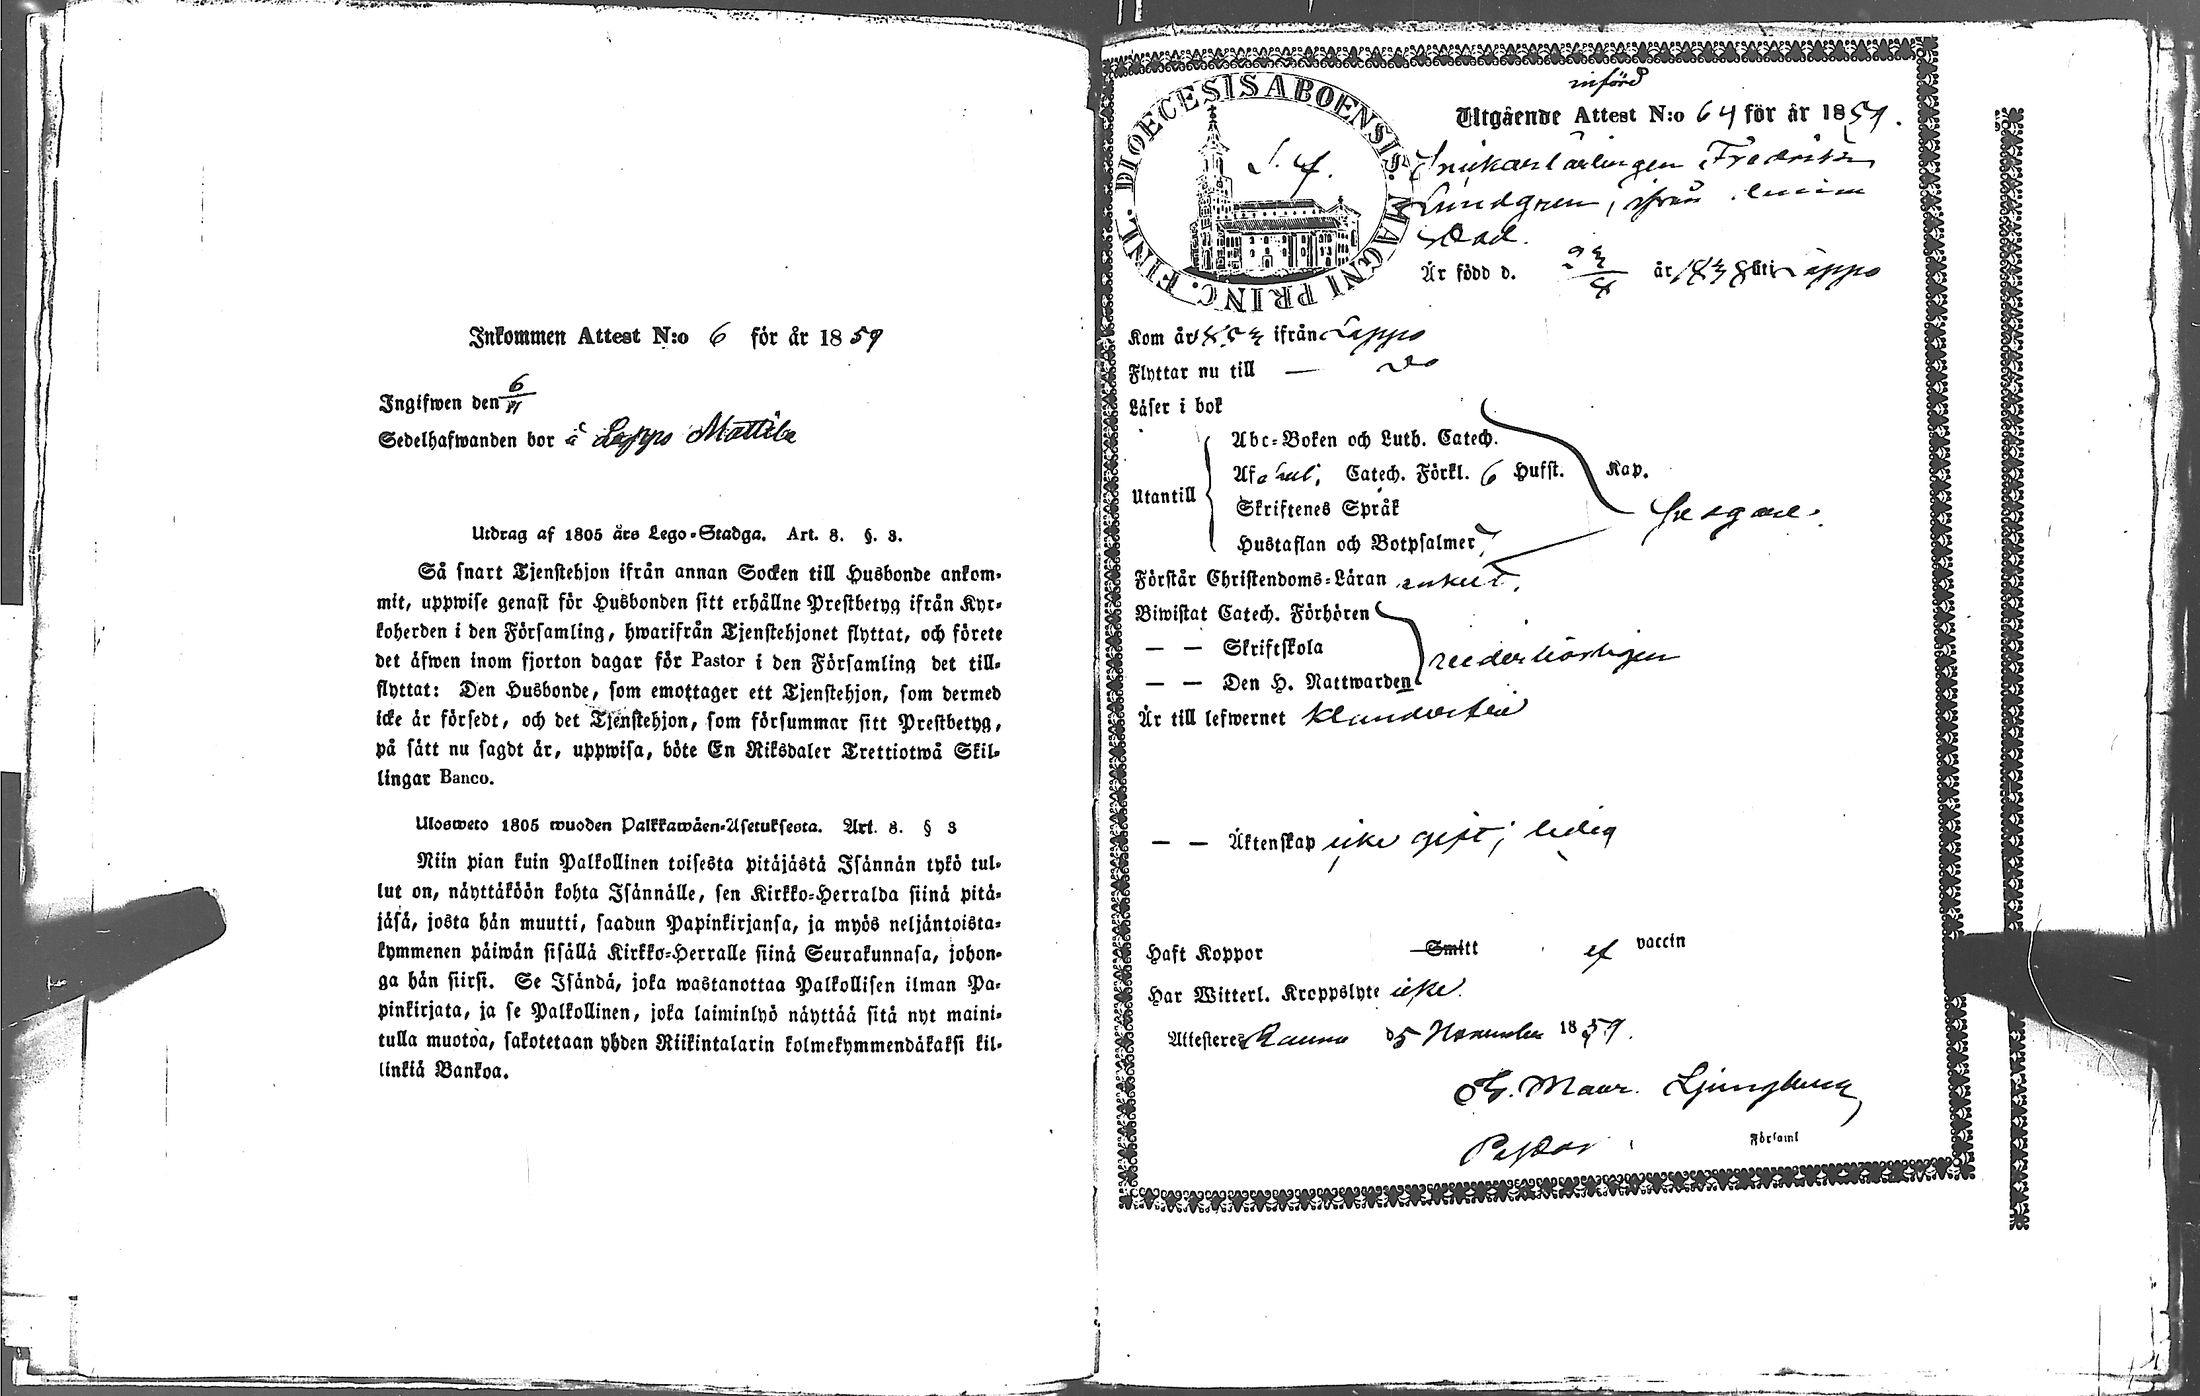 Inkommen Attest N:o 6 för år 1859
Ingifwen den 6/11
Sedelhafwanden bor å Lappo Mattila
Utdrag af 1805 års Lego-Stadga. Art. 8. §. 3.
Så snart Tjenstehjon ifrån annan Socken till Husbonde ankom-
mit, uppwise genast för Husbonden sitt erhållne Prestbetyg ifrån Kyr-
koherden i den Församling, hwarifrån Tjenstehjonet flyttat, och förete
det äfwen inom fjorton dagar för Pastor i den Församling det till-
flyttat: Den Husbonde, som emottager ett Tjenstehjon, som dermed
icke är försedt, och det Tjenstehjon, som försummar sitt Prestbetyg,
på sätt nu sagdt är, uppwisa, böte En Riksdaler Trettiotwå Skil-
lingar Banco.
Ulosweto 1805 wuoden Palkkawäen-Asetuksesta. Art. 8. § 3
Niin pian kuin Palkollinen toisesta pitäjästä Isännän tykö tul-
lut on, näyttäköön kohta Isännälle, sen Kirkko-Herralda siinä pitä-
jäsä, josta hän muutti, saadun Papinkirjansa, ja myös neljäntoista-
kymmenen päiwän sisällä Kirkko-Herralle siinä Seurakunnasa, johon-
ga hän siirsi. Se Isändä, joka wastanottaa Palkollisen ilman Pa-
pinkirjata, ja se Palkollinen, joka laiminlyö näyttää sitä nyt maini-
tulla muotoa, sakotetaan yhden Riikintalarin kolmekymmendäkaksi kil-
linkiä Bankoa.
DIOECESIS ABOENSIS. MAGNI PRINC. FINL.
införd
Utgående Attest N:o 64 för år 1859.
Snickarlärlingen Fredrik
Lundgren, ifrån
stad.
Är född d. 23/4 år 1838 uti Lappo
Kom år 1853 ifrån Lappo
Flyttar nu till — Do
Läser i bok
Abc-Boken och Luth. Catech.
Utantill
Catech. Förkl. 6 Hufst. Kap.
Skriftenes Språk
Hustaflan och Botpsalmer
Förstår Christendoms-Läran enkelt.
Biwistat Catech. Förhören
— — Skriftskola
— — Den H. Nattwarden
vederbörligen
Är till lefwernet klanderfri
— — Äktenskap icke gift; ledig
Haft Koppor Smitt ef vaccin
Har Witterl. Kroppslyte icke.
Attesteres Raumo d 5 November 1859.
Maur. Ljungberg
Pastor Församl